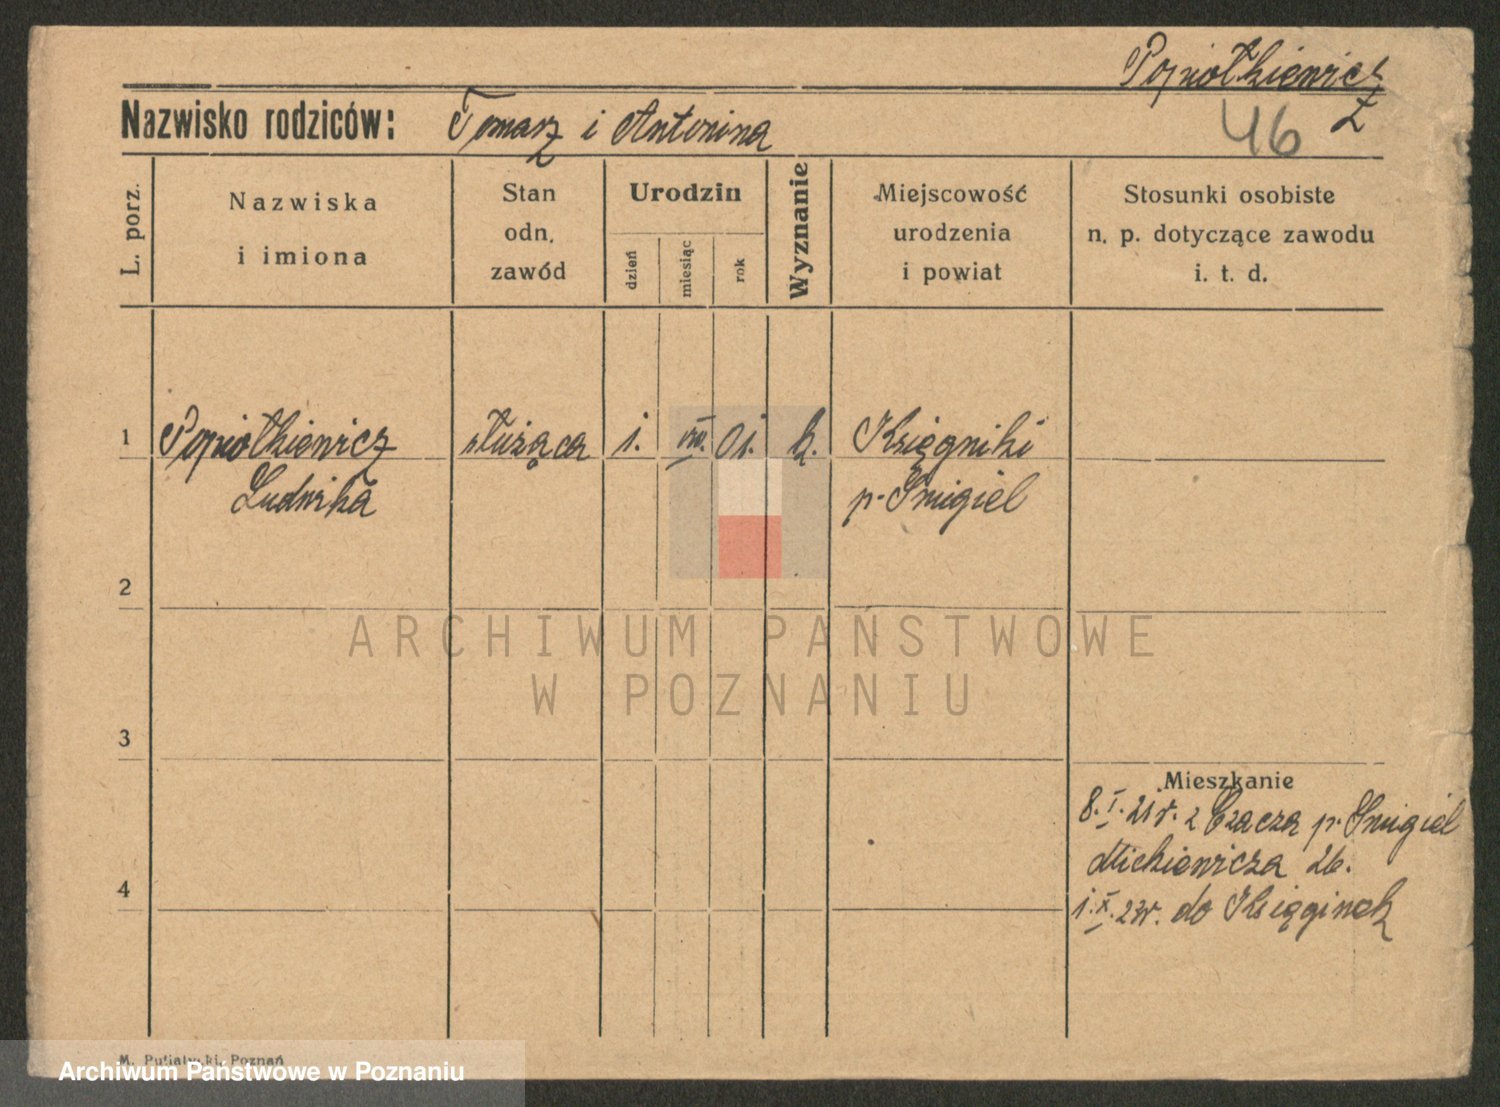 Popiołkiewicz
46
Nazwisko rodziców: Tomasz i Antonina
L. porz.
Nazwiska
i imiona
Stan
odn.
zawód
Urodzin
dzień
miesiąc
rok
Wyznanie
Miejscowość
urodzenia
i powiat
Stosunki osobiste
n. p. dotyczące zawodu
i. t. d.
1 Popiołkiewicz służąca 1. VIII. 01. k. Księgniki
Ludwika p. Śmigiel
2
ARCHIWUM PAŃSTWOWE
W POZNANIU
3
Mieszkanie
8. I. 21 r. z Czacza p. Śmigiel
Mickiewicza 26.
4
1. X. 23r. do Księginek
M. Putiatycki, Poznań
Archiwum Państwowe w Poznaniu